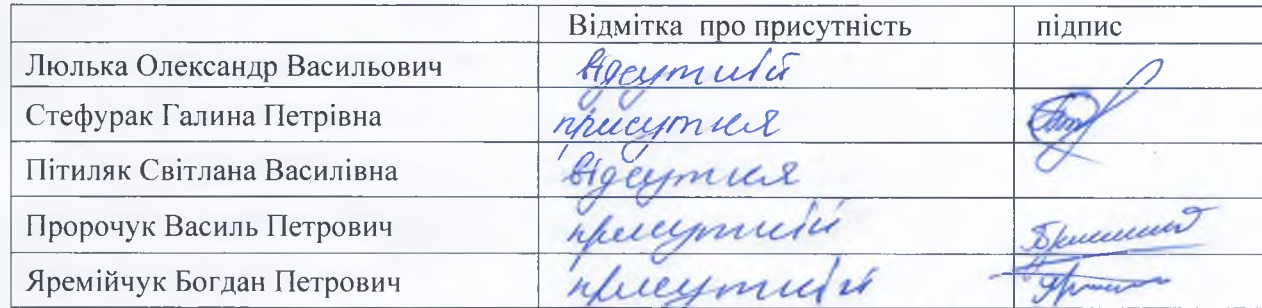 Відмітка про присутність підпис
Люлька Олександр Васильович відсутній
Стефурак Галина Петрівна присутня
Пітиляк Світлана Василівна відсутня
Пророчук Василь Петрович присутній
Яремійчук Богдан Петрович присутній